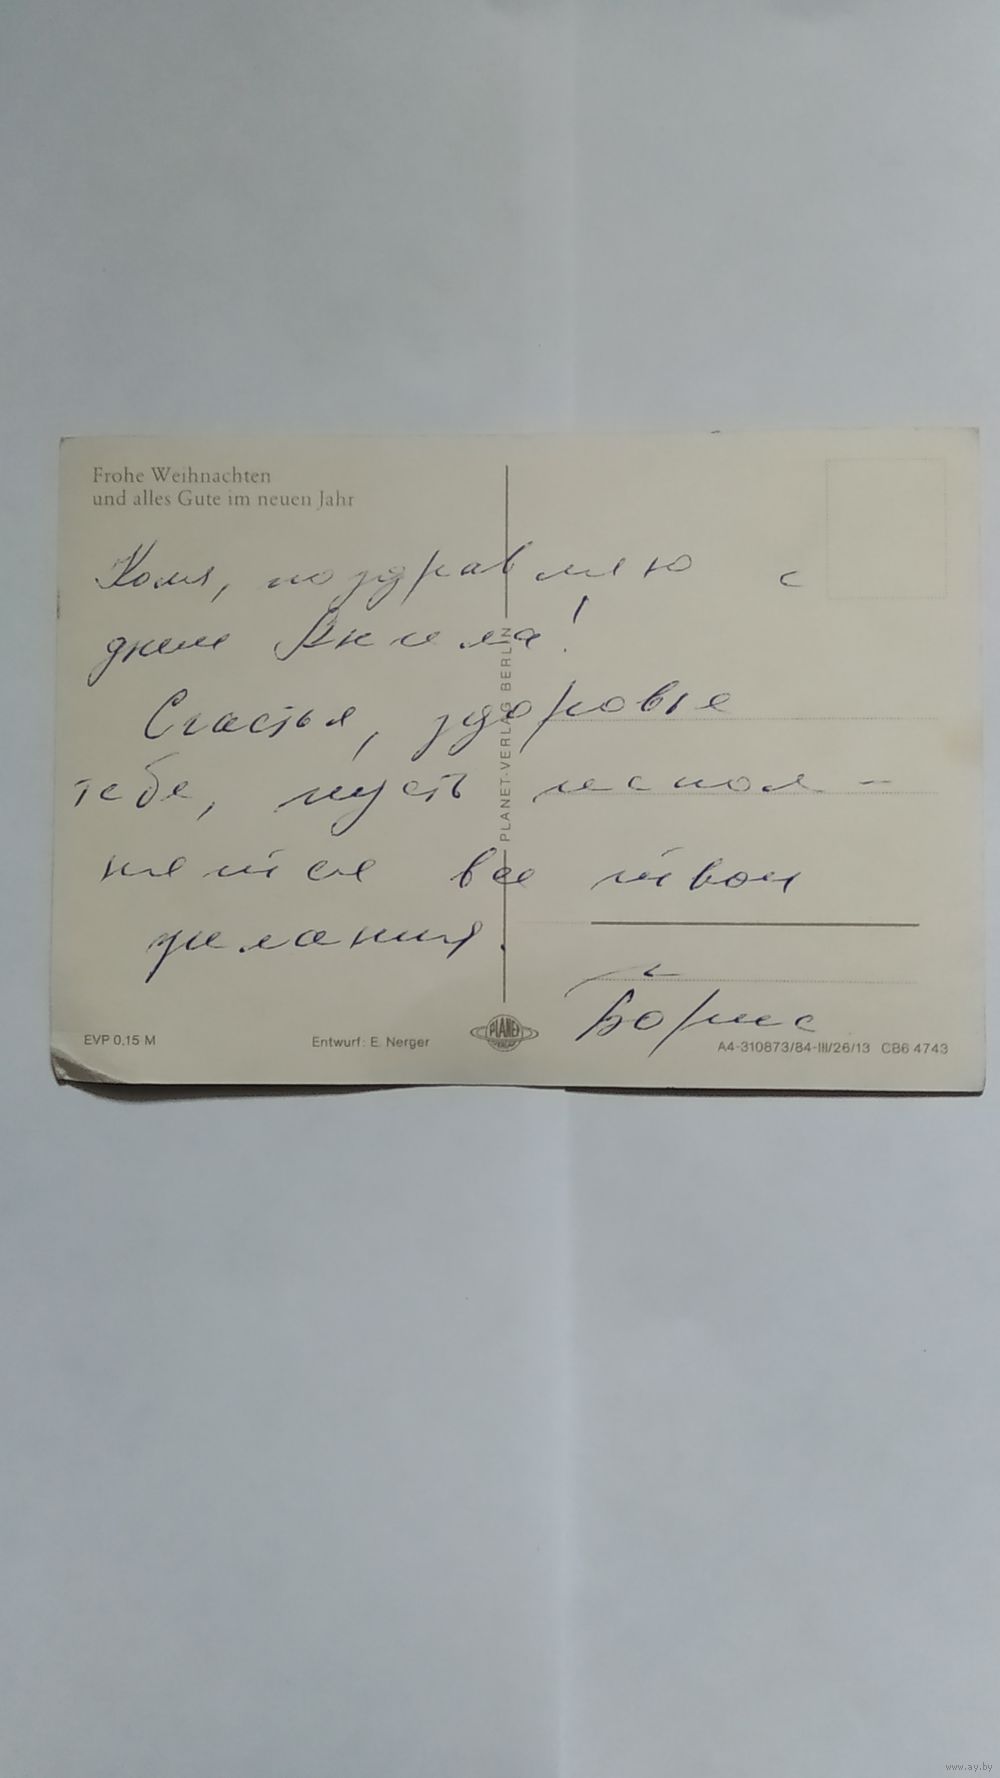 Frohe Weihnachten
und alles Gute im neuen Jahr
Коля, поздравляю с
днем Ангела!
Счастья, здоровье
тебе, пусть исполн-
няется все твои
желания.
Борис
PLANET-VERLAG BERLIN
EVP 0,15 M
Entwurf: E. Nerger
PLANET
VERLAG
A4-310873/84-III/26/13 CB6 4743
www.ay.by